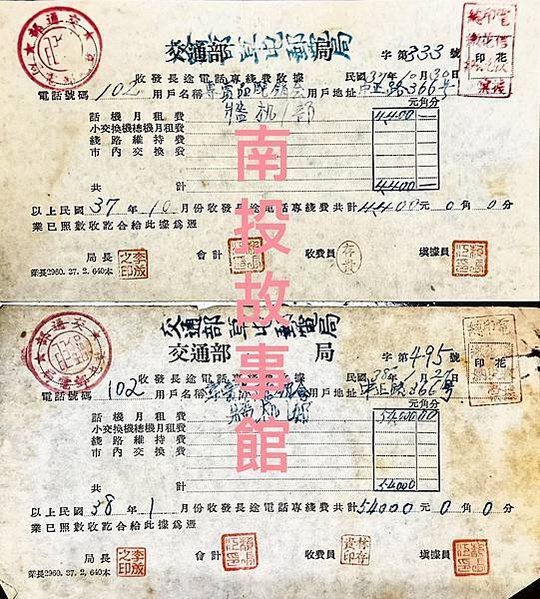 交通部草屯郵電局
字第333號
收發長途電話專綫費收據
民國37年10月30日
電話號碼 102 用戶名稱 用戶地址 中正路366号
元角分
話機月租費 4,400
小交換機總機月租費
綫路維持費
市內交換費
共計 4,400
以上民國37年10月份收發長途電話專綫費共計4,400元0角0分
業已照數收訖合給此據為憑
局長 會計 收費員 填據員
榮長2960.37.2.640本
印花
南投故事館
交通部草屯郵電局
交通部 局
字第495號
收發長途電話專綫費收據
民國38年 月27日
電話號碼 102 用戶名稱 用戶地址 中正路366号
元角分
話機月租費 54,000 00
小交換機總機月租費
綫路維持費
市內交換費
共計 54000
以上民國38年1月份收發長途電話專綫費共計54000元0角0分
業已照數收訖合給此據為憑
局長 會計 收費員 填據員
榮長2960.37.2.640本
印花